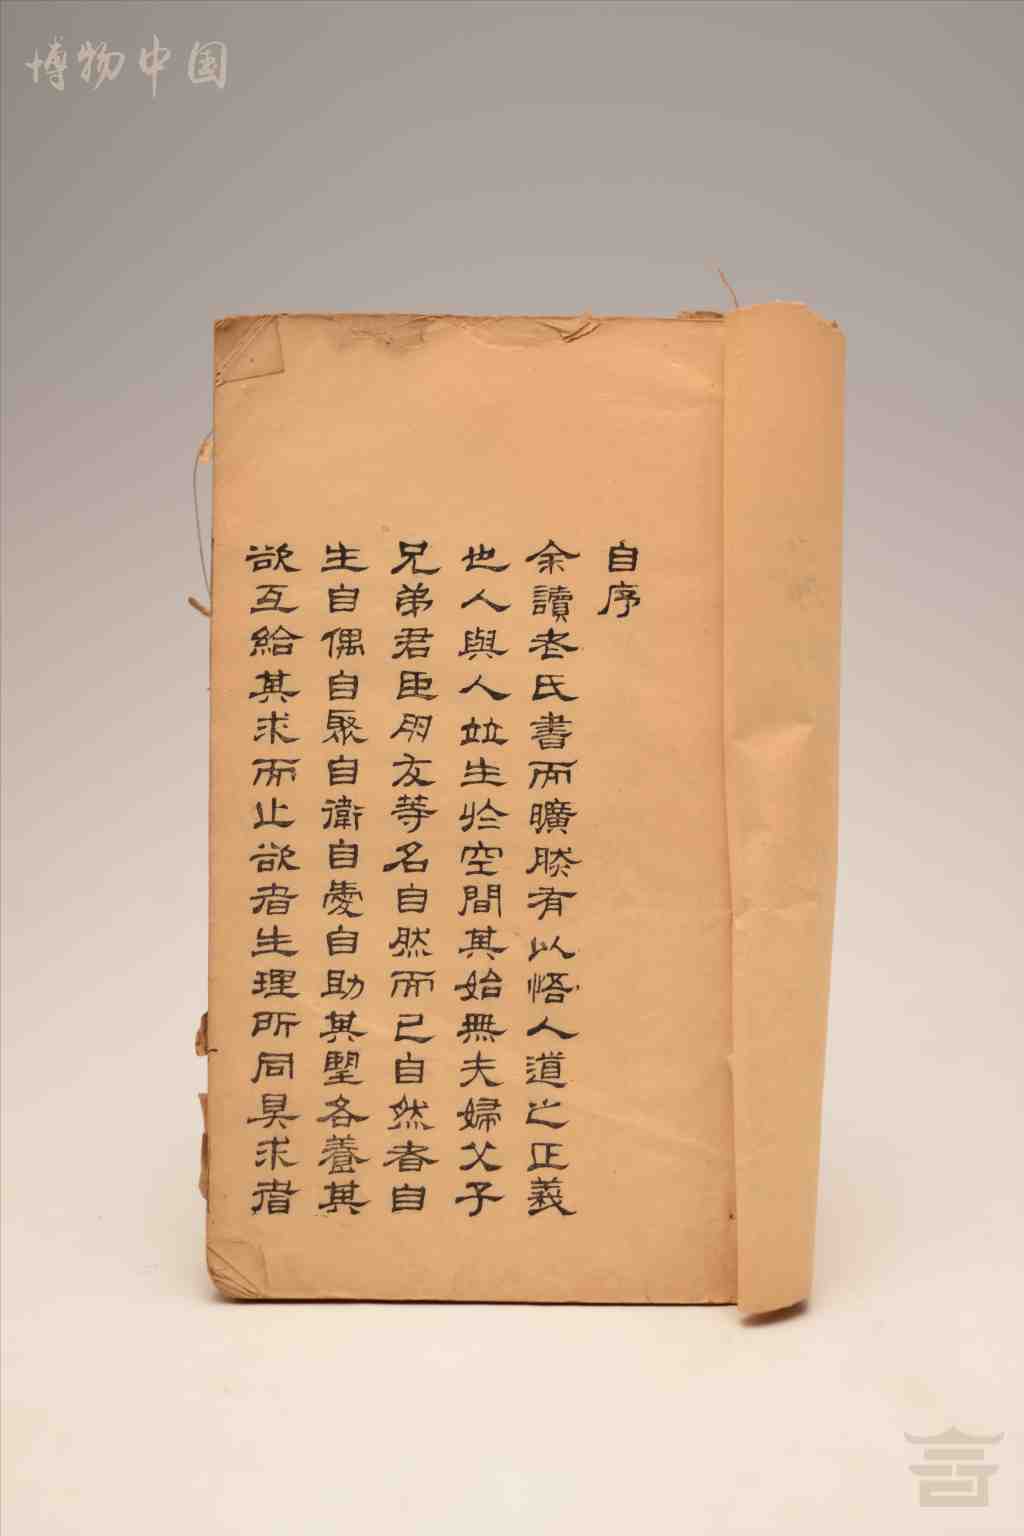 博物中国
自序
余讀老氏書而曠然有以悟人道之正義
也人與人並生於空間其始無夫婦父子
兄弟君臣朋友等名自然而已自然者自
生自偶自聚自衛自愛自助其羣各養其
欲互給其求而止欲者生理所同具求者